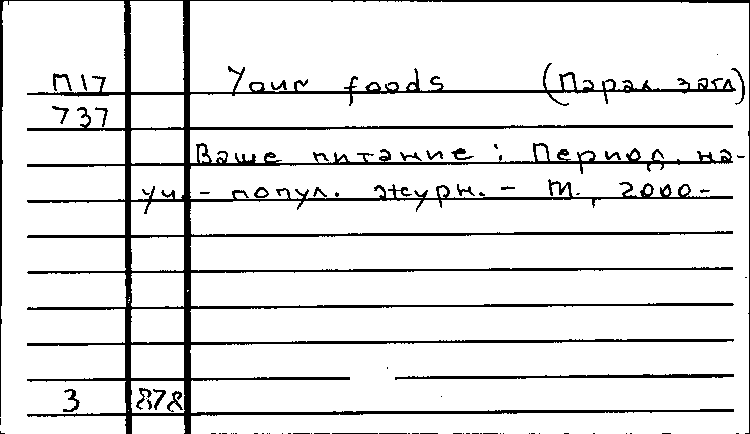 П17 Your foods (Парал. загл)
737
Ваше питание : Период. на-
уч.- попул. журн. - М., 2000-
3 878